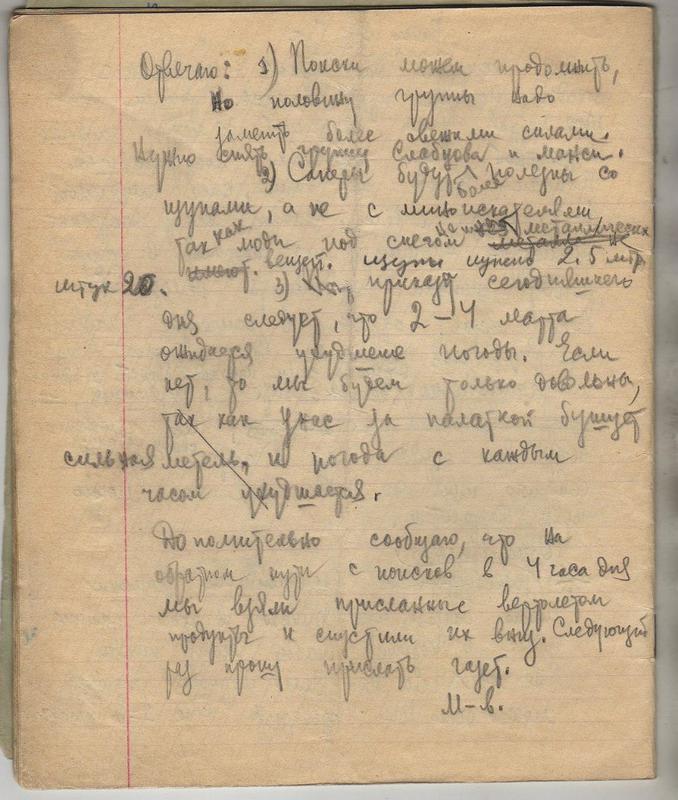 Отвечаю: 1) Поиски можем продолжить,
но половину группы надо
заменить более свежими силами.
Нужно снять группу Слабцова и манси.
2) Саперы будут более полезны со
щупами, а не с миноискателями,
так как люди под снегом металлических
имеют вещей. щупы нужны 2.5 мтр
штук 20.
3) Из приказа сегодняшнего
дня следует, что 2-4 марта
ожидается ухудшение погоды. Если
нет, то мы будем только довольны,
так как у нас за палаткой бушует
сильная метель, и погода с каждым
часом ухудшается.
Дополнительно сообщаю, что на
обратном пути с поисков в 4 часа дня
мы взяли присланные вертолетом
продукты и спустили их вниз. Следующий
раз прошу прислать газет.
М-в.